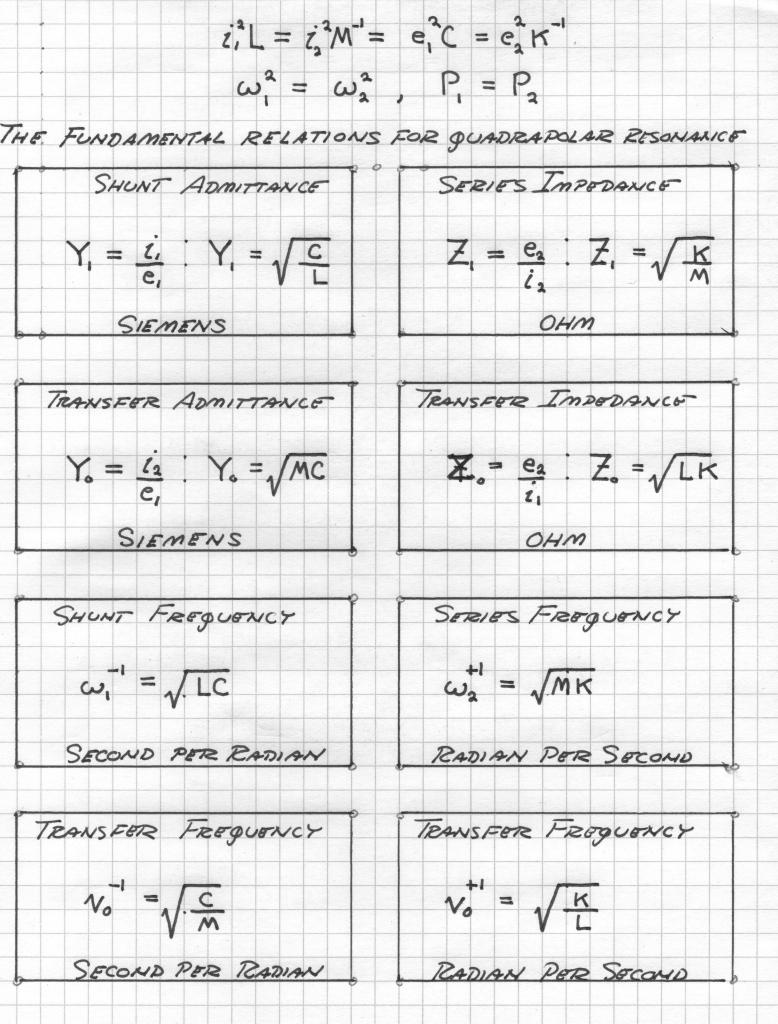 i₁²L = i₂²M⁻¹ = e₁²C = e₂²K⁻¹
ω₁² = ω₂² , P₁ = P₂
THE FUNDAMENTAL RELATIONS FOR QUADRAPOLAR RESONANCE
SHUNT ADMITTANCE
Y₁ = i₁/e₁ : Y₁ = √(C/L)
SIEMENS
SERIES IMPEDANCE
Z₁ = e₂/i₂ : Z₁ = √(K/M)
OHM
TRANSFER ADMITTANCE
Y₀ = i₂/e₁ : Y₀ = √MC
SIEMENS
TRANSFER IMPEDANCE
Z₀ = e₂/i₁ : Z₀ = √LK
OHM
SHUNT FREQUENCY
ω₁⁻¹ = √LC
SECOND PER RADIAN
SERIES FREQUENCY
ω₂⁺¹ = √MK
RADIAN PER SECOND
TRANSFER FREQUENCY
ν₀⁻¹ = √(C/M)
SECOND PER RADIAN
TRANSFER FREQUENCY
ν₀⁺¹ = √(K/L)
RADIAN PER SECOND